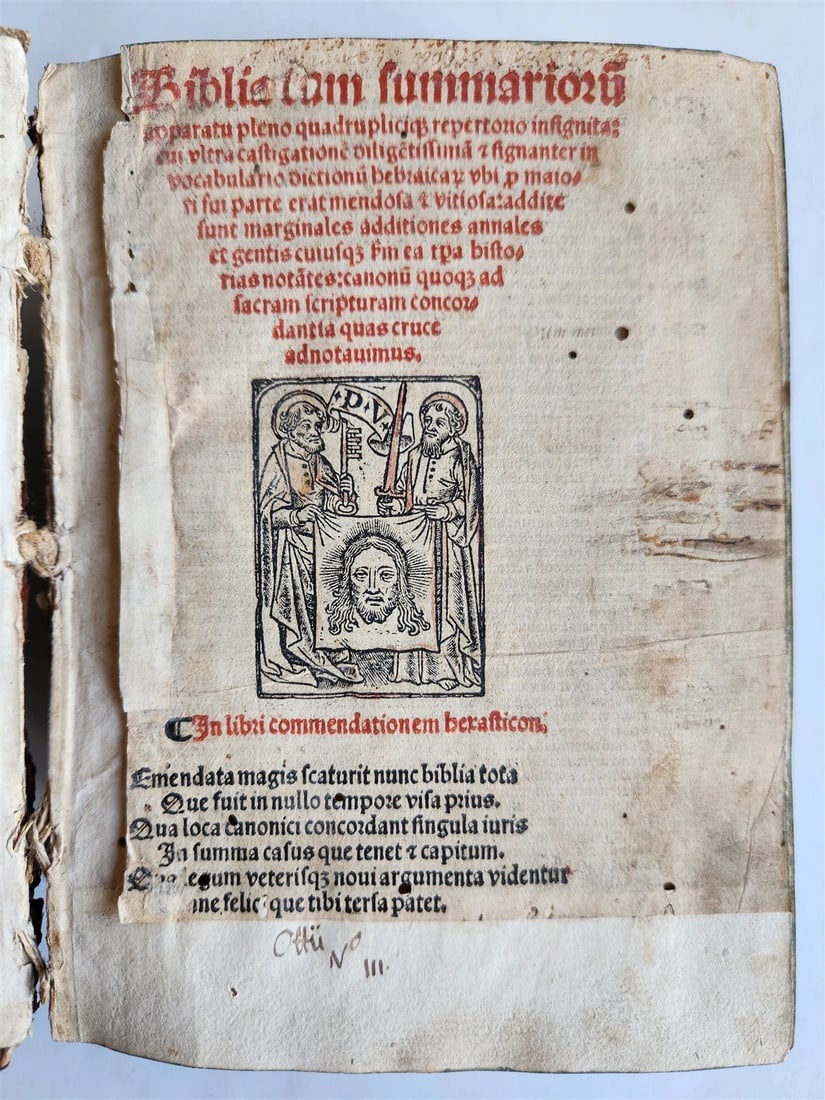 Biblia cum summariorū
apparatu pleno quadrupliciqꝫ repertorio insignita:
cui vltra castigationē diligētissimā ⁊ signanter in
vocabulario dictionū hebraicaꝝ vbi ꝓ maio⸗
ri sui parte erat mendosa ⁊ vitiosa: addite
sunt marginales additiones annales
et gentis cuiusqꝫ hm̄ ea tp̄a histo⸗
rias notātes: canonū quoqꝫ ad
sacram scripturam concor⸗
dantia quas cruce
adnotauimus.
P V
In libri commendationem hexasticon.
Emendata magis scaturit nunc biblia tota
Que fuit in nullo tempore visa prius.
Qua loca canonici concordant singula iuris
In summa casus que tenet ⁊ capitum.
legum veterisqꝫ noui argumenta videntur
que tibi tersa patet.
No
III.